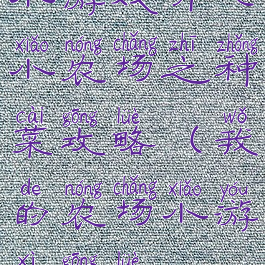 xiǎo nóng chǎng zhī zhǒng
小农场之种
cài gōng lüè wǒ
菜攻略（我
de nóng chǎng xiǎo yóu
的农场小游
xì gōng lüè